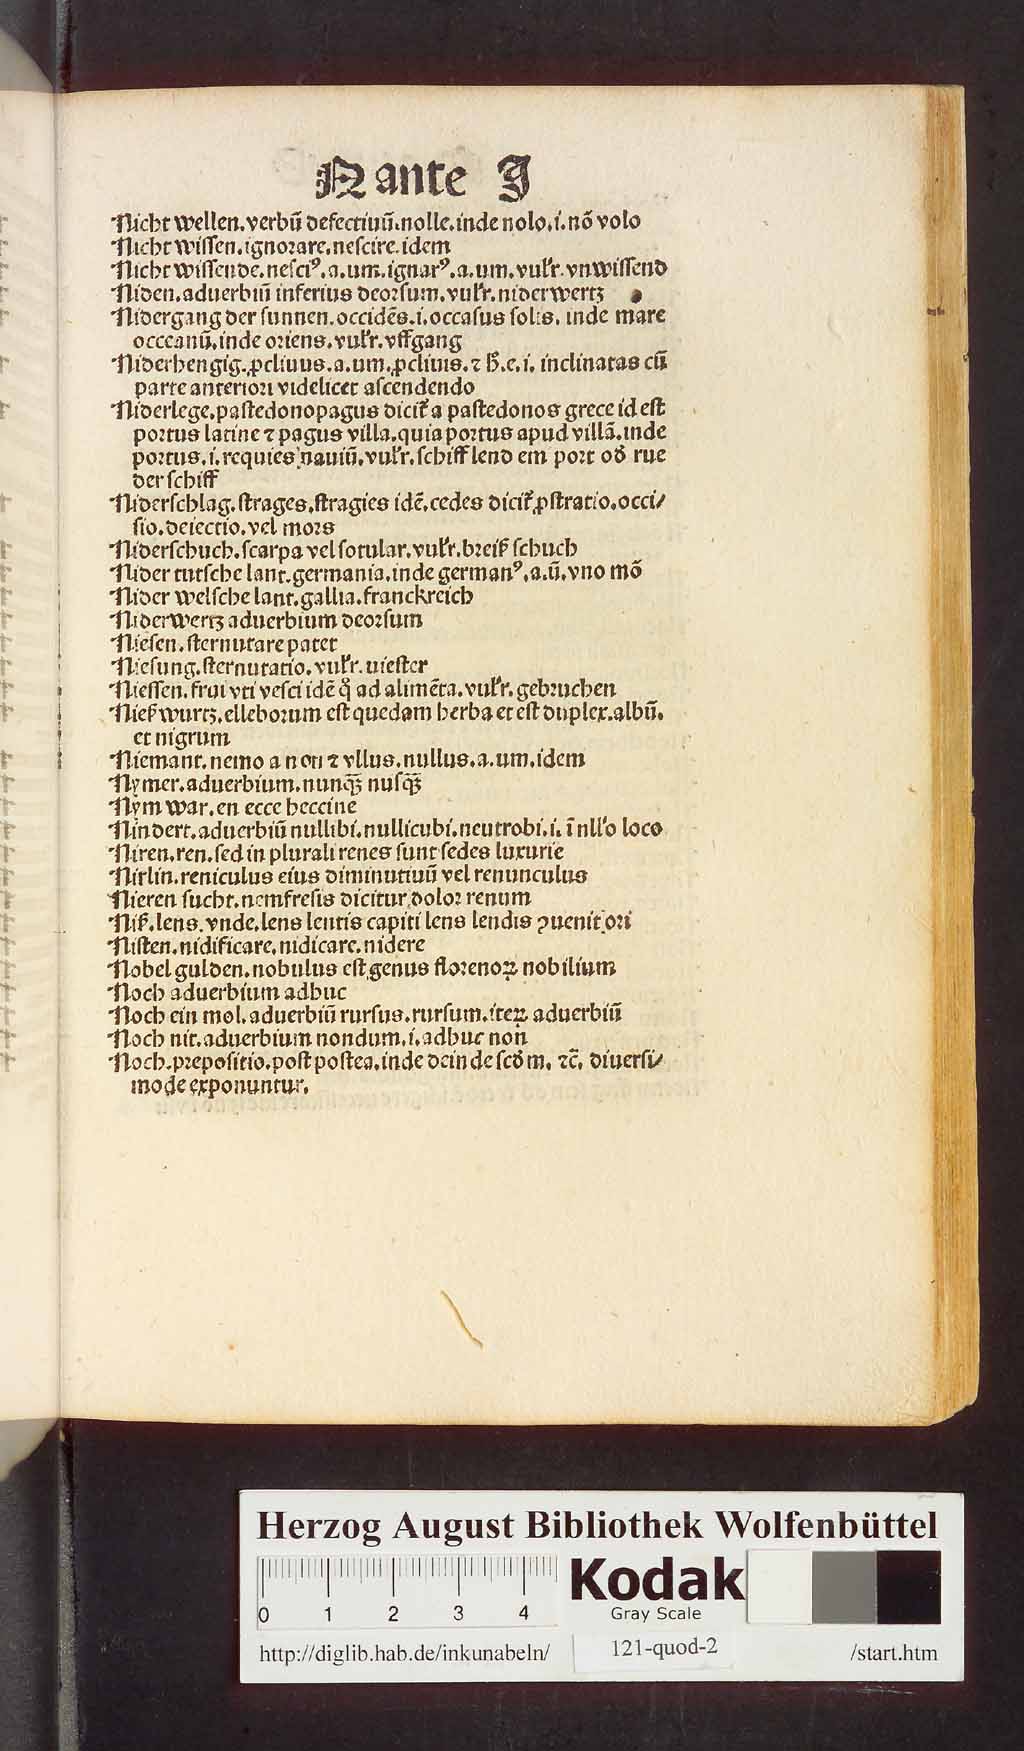 N ante J
Nicht wellen. verbū defectiuū. nolle. inde nolo. i. nō volo
Nicht wissen. ignorare. nescire. idem
Nicht wissende. nesciꝰ. a. um. ignarꝰ. a. um. vulr. vnwissend
Niden. aduerbiū inferius deorsum. vulr. niderwertz
Nidergang der sunnen. occidēs. i. occasus solis. inde mare
occeanū. inde oriens. vulr. vffgang
Niderhengig. ꝓcliuus. a. um. ꝓcliuis. ⁊ h̄. e. i. inclinatas cū
parte anteriori videlicet ascendendo
Niderlege. pastedonopagus dicit᷑ a pastedonos grece id est
portus latine ⁊ pagus villa. quia portus apud villā. inde
portus. i. requies nauiū. vulr. schiff lend em port od̄ rue
der schiff
Niderschlag. strages. stragies idē. cedes dicit᷑ ꝓstratio. occi/
sio. deiectio. vel mors
Niderschuch. scarpa vel sotular. vulr. breiß schuch
Nider tutsche lant. germania. inde germanꝰ. a. ū. vno mō
Nider welsche lant. gallia. franckreich
Niderwertz aduerbium deorsum
Niesen. sternutare patet
Niesung. sternutatio. vulr. niester
Niessen. frui vti vesci idē qͦ ad alimēta. vulr. gebruchen
Nieß wurtz. elleborum est quedam herba et est duplex. albū.
et nigrum
Niemant. nemo a non ⁊ vllus. nullus. a. um. idem
Nymer. aduerbium. nunqꝫ nusqꝫ
Nÿm war. en ecce heccine
Nindert. aduerbiū nullibi. nullicubi. neutrobi. i. ī nllo loco
Niren. ren. sed in plurali renes sunt sedes luxurie
Nirlin. reniculus eius diminutiuū vel renunculus
Nieren sucht. nemfresis dicitur dolor renum
Niß. lens. vnde. lens lentis capiti lens lendis ꝯuenit ori
Nisten. nidificare. nidicare. nidere
Nobel gulden. nobulus est genus florenoꝝ nobilium
Noch aduerbium adhuc
Noch ein mol. aduerbiū rursus. rursum. iteꝝ aduerbiū
Noch nit. aduerbium nondum. i. adhuc non
Noch. prepositio. post postea. inde deinde scd̄m. ⁊c̄. diuersi/
mode exponuntur.
Herzog August Bibliothek Wolfenbüttel
0 1 2 3 4
Kodak
Gray Scale
http://diglib.hab.de/inkunabeln/ 121-quod-2 /start.htm